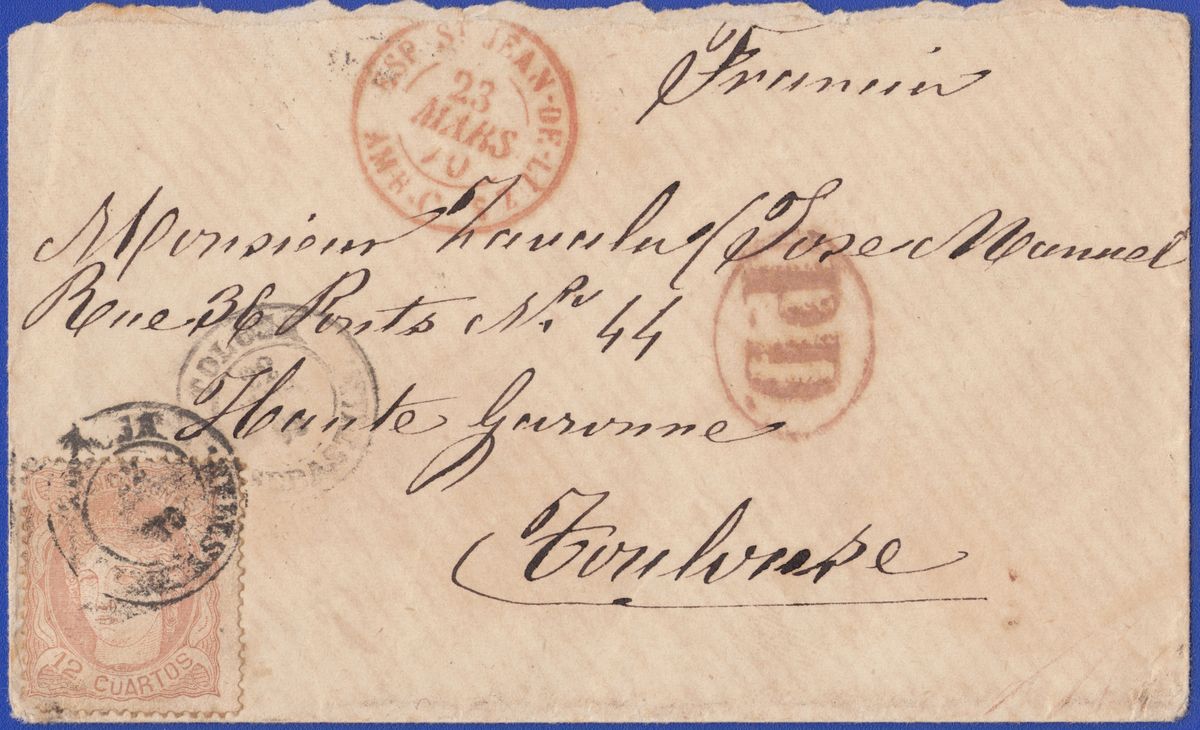 Francia
ESP. ST JEAN-DE-LUZ
23
MARS
70
AMB. C
Monsieur Zavala / Jose Manuel
Rue 36 Ponts No. 44
PD
TOLOSA
22
Haute Garonne
Toulouse
12 CUARTOS